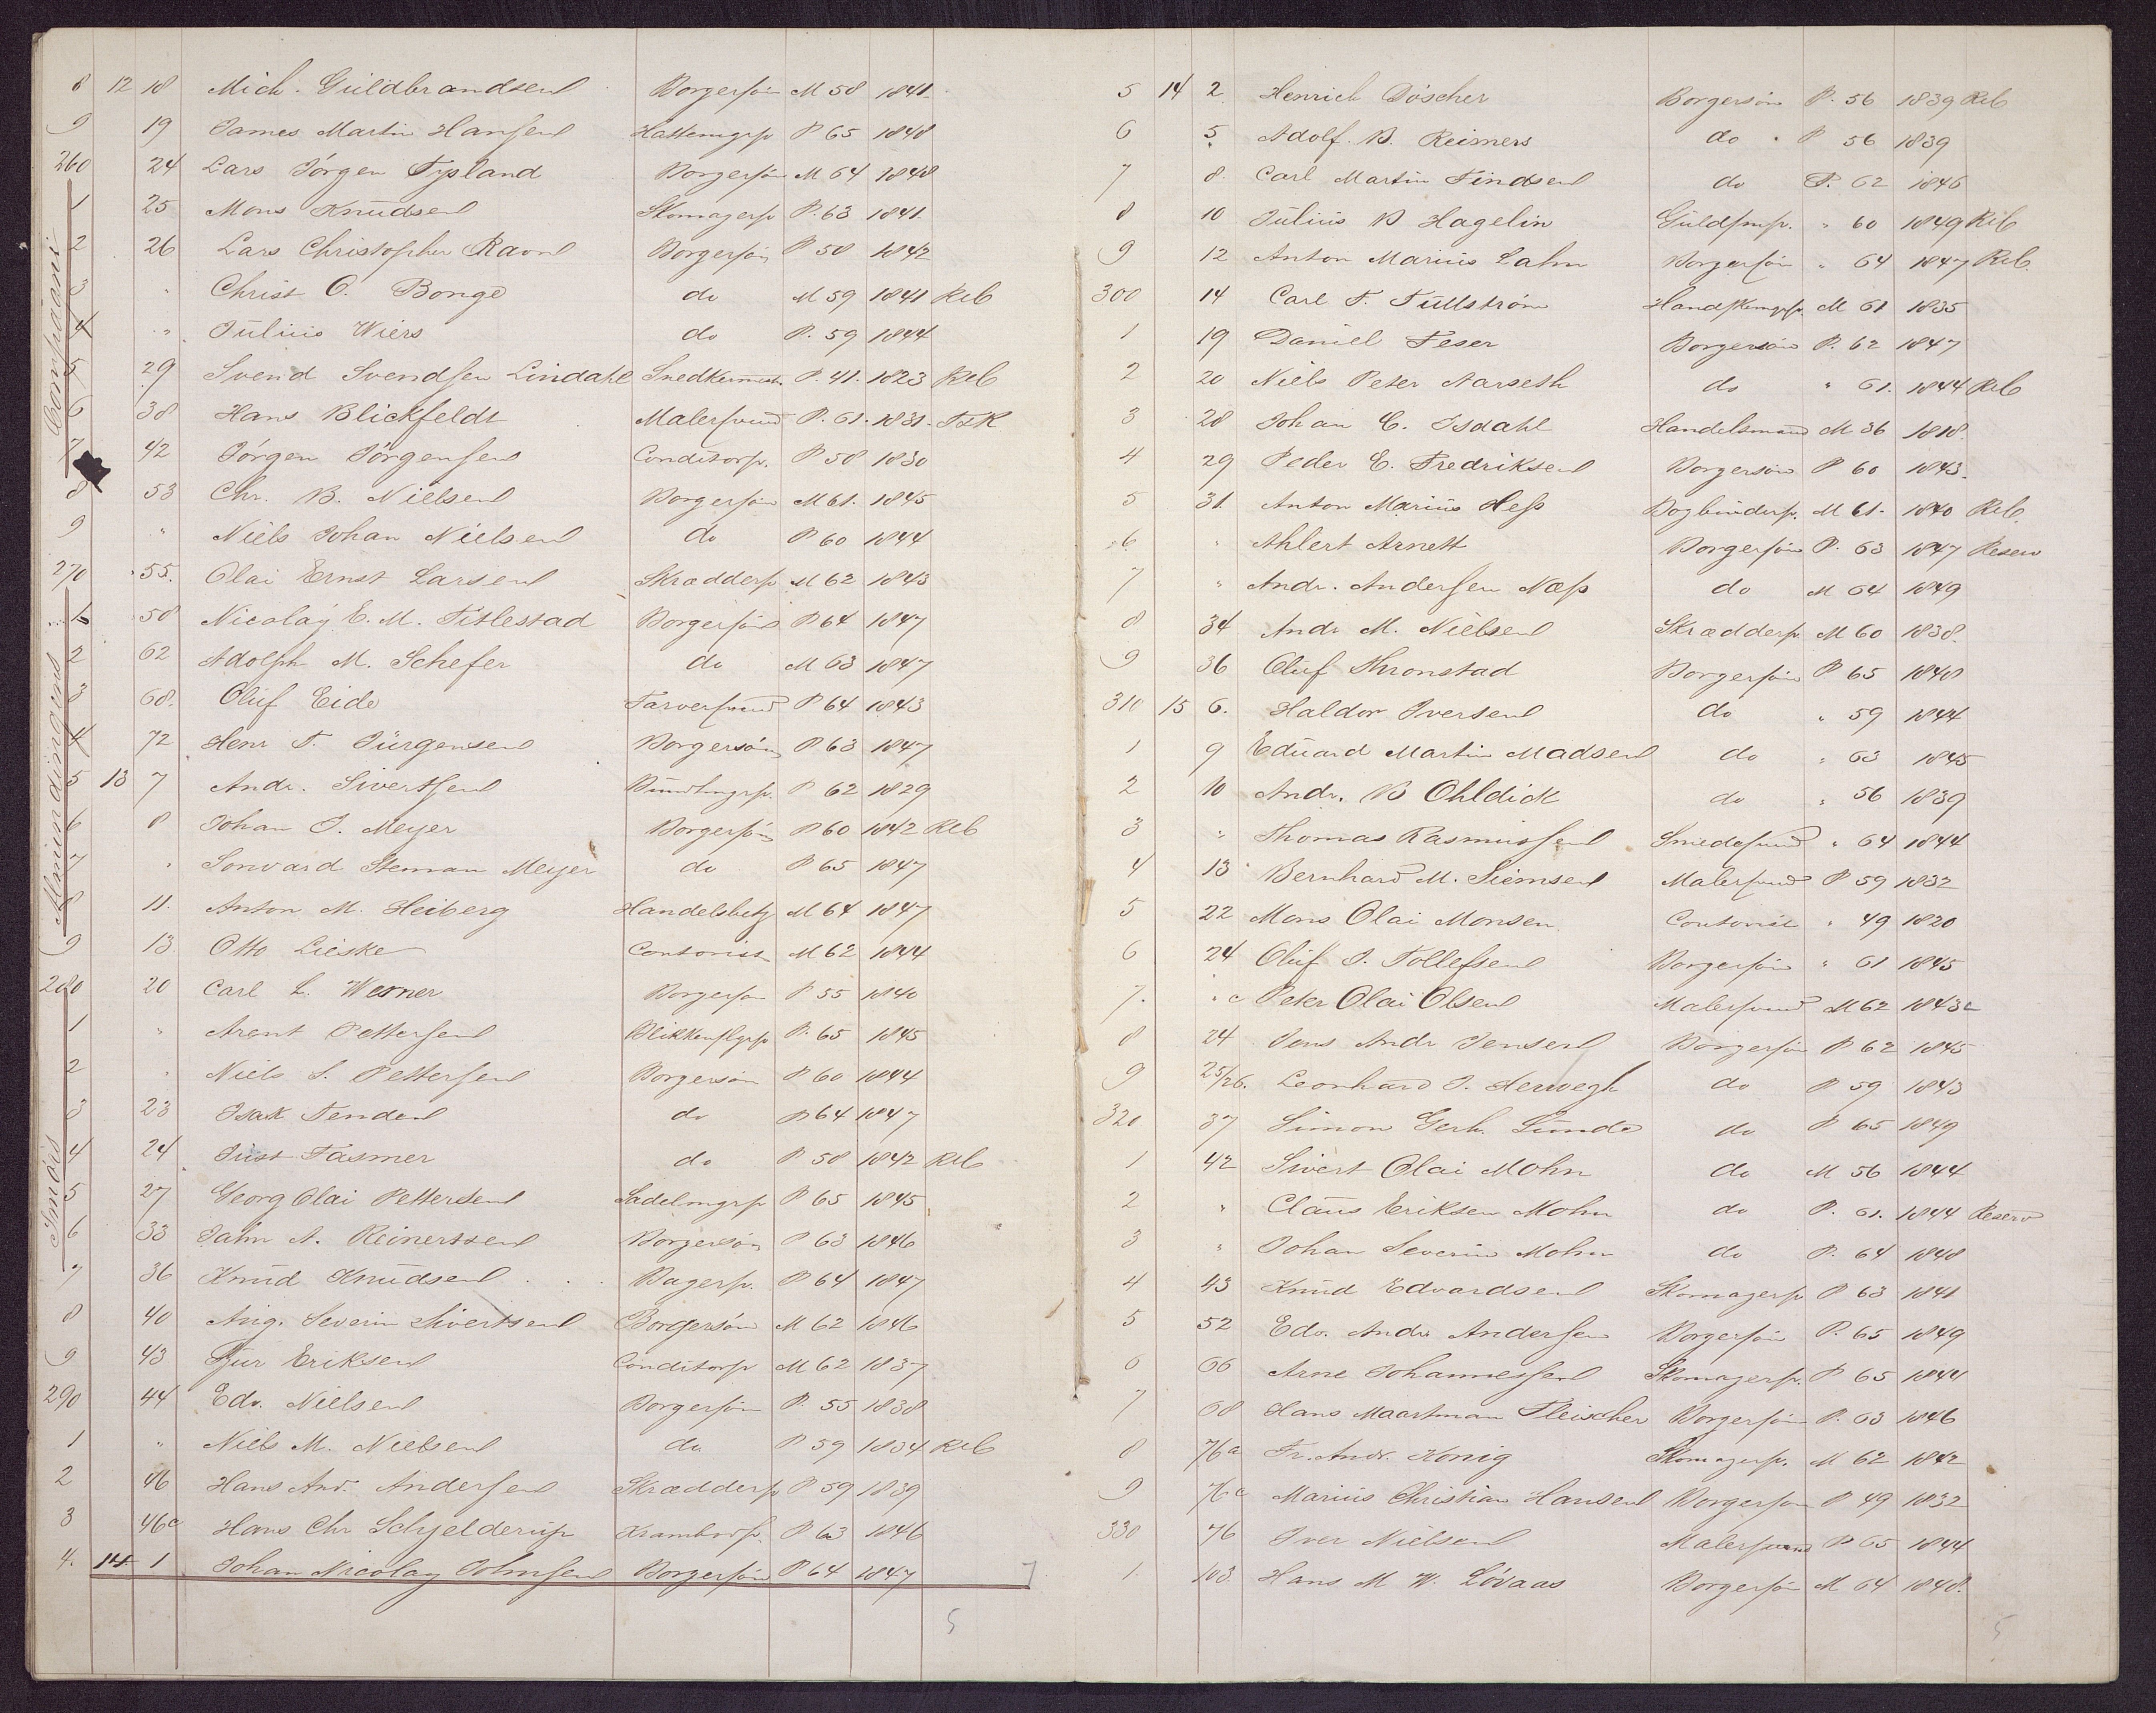 8 12 18 Mich. Guldbrandsen Borgersøn M 58 1841
9 19 James Martin Hansen P 65 1848
260 24 Lars Jörgen Tysland Borgersøn M 64 1848
1 25 Mons Knudsen Skomagersv P. 63 1841
2 26 Lars Christopher Ravn Borgersøn P 58 1842
3 " Christ O. Bonge do M 59 1841 Reb
4 " Julius Wiers do P. 59 1844
5 29 Svend Svendsen Lindahl Snedkermest. P. 41. 1823 Reb
6 38 Hans Blickfeldt Malersvend P. 61. 1831. TsK
7 42 Jörgen Jörgensen Conditorsv. P 58 1830
8 53 Chr. B. Nielsen Borgersøn M 61. 1845
9 " Niels Johan Nielsen do P 60 1844
270 55. Olai Ernst Larsen Skræddersv M 62 1843
1 58 Nicolay E. M. Titlestad Borgersøn P 64 1847
2 62 Adolph M. Schefer do M 63 1847
3 68. Oluf Eide Farversvend P 64 1843
4 72 Henr T. Jürgensen Borgersøn P 63 1847
5 13 7 Andr. Sivertsen P 62 1829
6 8 Johan J. Meyer Borgersøn P 60 1842 Reb
7 " Steman Meyer do P 65 1847
8 11. Anton M. Heiberg Handelsbetj M 64 1847
9 13 Otto Lieske Contorist M 62 1844
280 20 Carl L. Werner Borgersøn P 55 1840
1 " Arent Pettersen P. 65 1845
2 " Niels S. Pettersen Borgersøn P 60 1844
3 23 Isak Tenden do P 64 1847
4 24 Just Fasmer do P 58 1842 Reb
5 27 Georg Olai Pettersen Sadelmgrsv P 65 1845
6 33 Jahn A. Reinertsen Borgersøn P 63 1846
7 36 Knud Knudsen Bagersv. P 64 1847
8 40 Aug. Severin Sivertsen Borgersøn M 62 1846
9 43 Tjur Eriksen Conditorsv M 62 1837
290 44 Edv. Nielsen Borgersøn P. 55 1838
1 " Niels M. Nielsen do. P 59 1834 Reb
2 46 Hans And. Andersen Skræddersv P 59 1839
3 46c Hans Chr Schjelderup P 63 1846
4. 14 1 Johan Nicolay Johnsen Borgersøn P 64 1847
7
5
Compagni
Almindingens
Smöis
5 14 2 Henrich Döscher Borgersön P. 56 1839 Reb
6 5. Adolf. B. Reimers do P 56 1839
7 8. Carl Martin Findsen do P. 62 1846
8 10 Julius B Hagelin Guldsmsv. " 60 1849 Reb
9 12 Anton Marius Lahm Borgersøn " 64 1847 Reb.
300 14 Carl F. Tullström M 61 1835
1 19 Daniel Feser Borgersön P. 62 1847
2 20 Niels Peter Aarseth do " 61. 1844 Reb
3 28 Johan C. Isdahl Handelsmand M 36 1818.
4 29 Peder E. Fredriksen Borgersön P 60 1843.
5 31. Anton Marius Hess Bogbindersv. M 61. 1840 Reb.
6 " Ahlert Arnett Borgersøn P. 63 1847 Reserv
7 " Andr. Andersen Næss do M 64 1849
8 34 Andr M. Nielsen Skræddersv. M 60 1838.
9 36 Oluf Thronstad Borgersøn P 65 1848
310 15 6. Haldor Iversen do " 59 1844
1 9 Eduard Martin Madsen do " 63 1845
2 10 Andr. B Ohldick do " 56 1839
3 " Thomas Rasmussen Smedesvend " 64 1844
4 13 Bernhard M. Siemsen Malersvend P 59 1832
5 22 Mons Olai Monsen Contorist " 49 1820
6 24 Oluf J. Tollefsen Borgersøn " 61 1845
7. " c Peter Olai Olsen Malersvend M 62 1843
8 24 Jens Andr Jensen Borgersøn P 62 1845
9 25/26. Leonhard J. Herwegh do P 59 1843
320 37 Simon Gerh. Sunde do P 65 1849
1 42 Sivert Olai Mohn do M 56 1844
2 " Claus Eriksen Mohn do P. 61. 1844 Reserv
3 " Johan Severin Mohn do P. 64 1848
4 43 Knud Edvardsen Skomagersv P 63 1841
5 52 Edv. Andr Andersen Borgersøn P. 65 1849
6 66 Arne Johannessen Skomagersv. P 65 1844
7 68 Hans Maartman Fleischer Borgersøn P. 63 1846
8 76a Fr. Andr. König Skomagersv. M 62 1842
9 76c Marius Christian Hansen Borgersøn P 49 1832
330 76 Iver Nielsen Malersvend P 65 1844
1. 103. Hans M W. Lövaas Borgersøn M 64 1848.
5